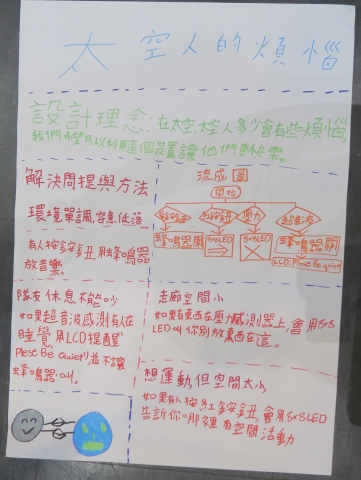 太空人的煩惱
設計理念:在太空,太空人多少會有些煩惱,
我們希望可以利用這個裝置讓他們更快樂。
解決問提與方法
環境單調,容易低迷
有人按鈕,用蜂鳴器
放音樂。
流成圖
開始
壓力
超音波
蜂鳴器關
5×5LED
LCD:Plese Be quiet
隊友休息不能吵
如果超音波感測有人在
睡覺,用LCD提醒
Plese Be Quiet並不讓
蜂鳴器叫。
走廊空間小
如果有東西在壓力感測器上,會用5x5
LED叫你別放東西在這。
想運動,但空間太小
如果有人按紅鈕,會用5x5LED
告訴你哪裡有空間活動